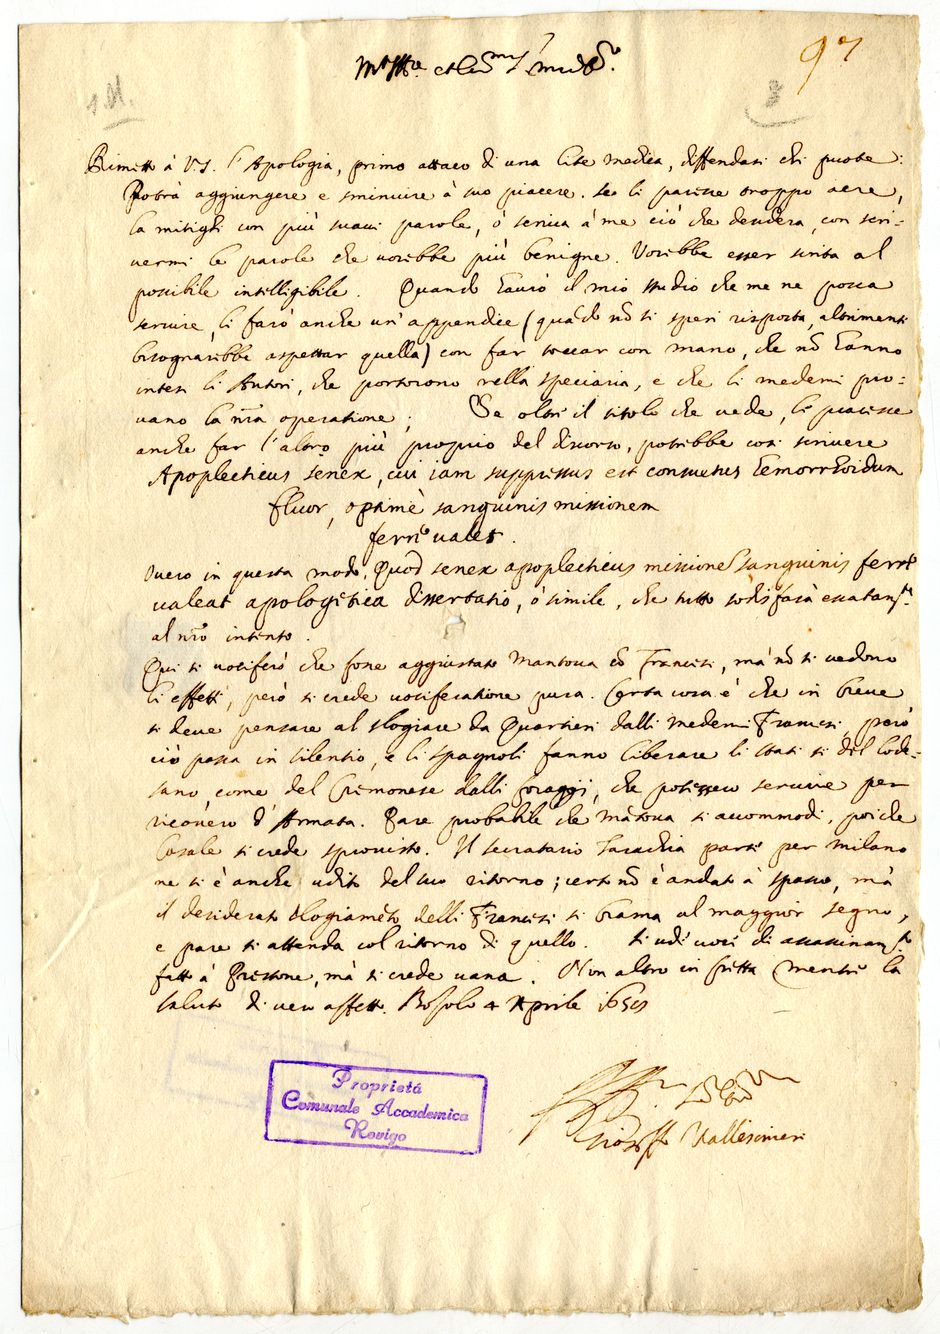 97
Rimetto à V.S. l'Apologia, primo attaco di una lite medica, diffendasi chi puote:
Potrà aggiungere e sminuire à suo piacere. Se li paresse troppo acre,
la mitighi con più suavi parole, ò scriva à me ciò che desidera, con scri-
vermi le parole che vorebbe più benigne. Vorebbe esser scritta al
possibile intelligibile. Quando havrò il mio studio che me ne possa
servire, li farò anche un'appendice (quãdo nõ si speri risposta, altrimenti
bisognarebbe aspettar quella) con far toccar con mano, che nõ hanno
intesi li Autori, che portorono nella speciaria, e che li medemi pro-
vano la nr̃a operatione; Se oltre il titolo che vede, li piacesse
anche far l'altro più proprio del discorso, potrebbe così scrivere
Apoplecticus senex, cui iam suppressus est consuetus hemorrhoidum
fluor, optimè sanguinis missionem
ferre valet.
Overo in questo modo, Quod senex apoplecticus missionẽ sanguinis ferre
valeat apologetica dissertatio, ò simile, che tutto sodisfarà
al nr̃o intento.
Qui si vociferò che fosse aggiustato Mantova cõ Francesi, mà nõ si vedono
li effetti, però si crede vociferatione pura. Certa cosa è che in breve
si deve pensare al slogiare da Quartieri dalli medemi Francesi, però
ciò passa in silentio, e li spagnoli fanno liberare li stati sì del Lode-
sano come del Cremonese dalli foraggi, che potessero servire per
ricovero d'Armata. Pare probabile che Mãtova si accommodi, poiche
Casale si crede sprovisto. Il secratario Tarachia partì per Milano
ne si è anche udito del suo ritorno; certo nõ è andato à spasso, mà
il desiderato slogiamẽto delli Francesi si brama al maggior segno,
e pare si attenda col ritorno di quello. Si udì voci di assassinam.to
fatto à Brissone, mà si crede vana. Non altro in fretta mentre la
saluto di vero affetto. Bosolo 4 Aprile 1655
Gioseffo Vallesineri
Proprietà
Comunale Accademica
Rovigo